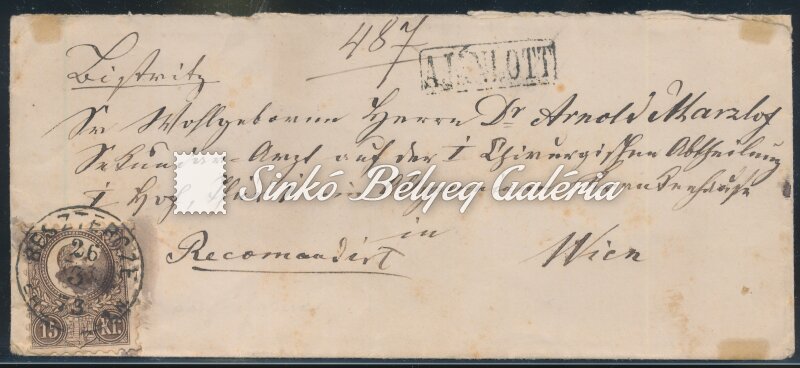 487
AJÁNLOTT
Bistritz
Sr Wohlgeboren Herrn Dr Arnold Marzlof
Sekundar-Arzt auf der I Chirurgischen Abtheilung
Sinkó Bélyeg Galéria
in
Recomandirt Wien
BESZTERCZE
26
73
15 Kr.